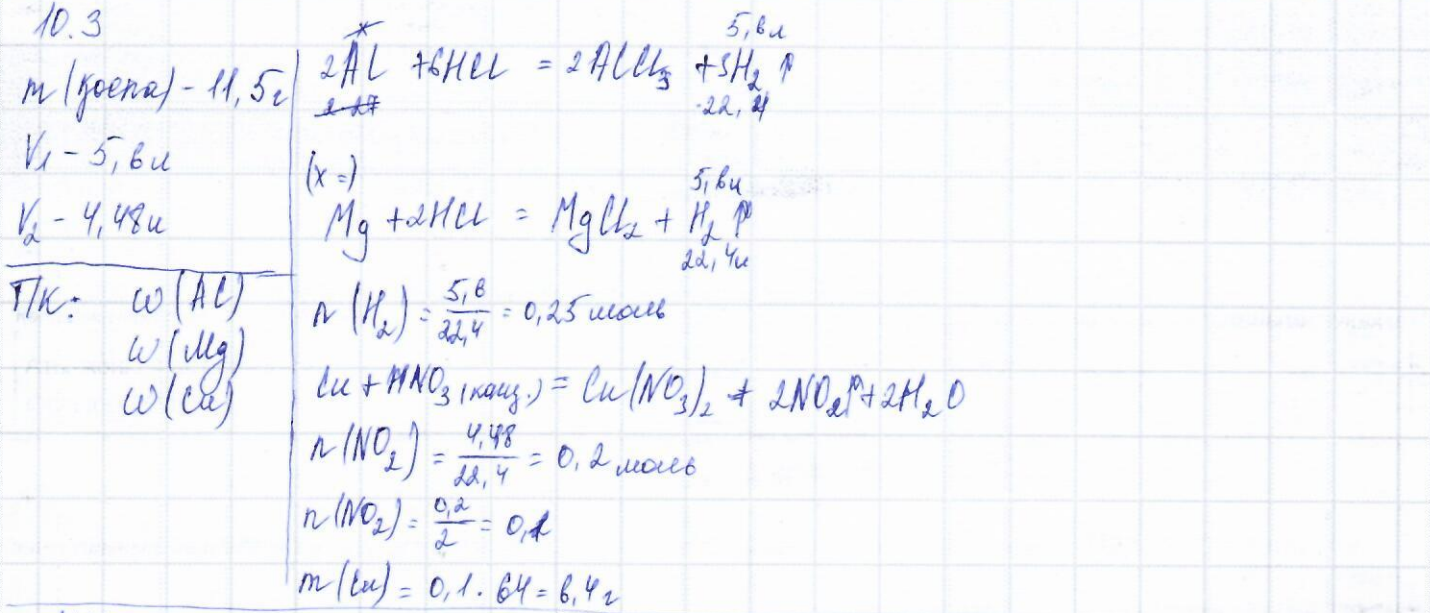 10.3
m (қоспа) - 11,5г
V₁ - 5,6л
V₂ - 4,48л
Т/к: ω (Al)
ω (Mg)
ω (Cu)
x 5,6л
2Al + 6HCl = 2AlCl₃ + 3H₂ ↑
2·27 ·22,4
(x =)
5,6л
Mg + 2HCl = MgCl₂ + H₂ ↑
22,4л
n (H₂) = 5,6/22,4 = 0,25 моль
Cu + HNO₃ (конц.) = Cu(NO₃)₂ + 2NO₂↑ + 2H₂O
n (NO₂) = 4,48/22,4 = 0,2 моль
n (NO₂) = 0,2/2 = 0,1
m (Cu) = 0,1 · 64 = 6,4г